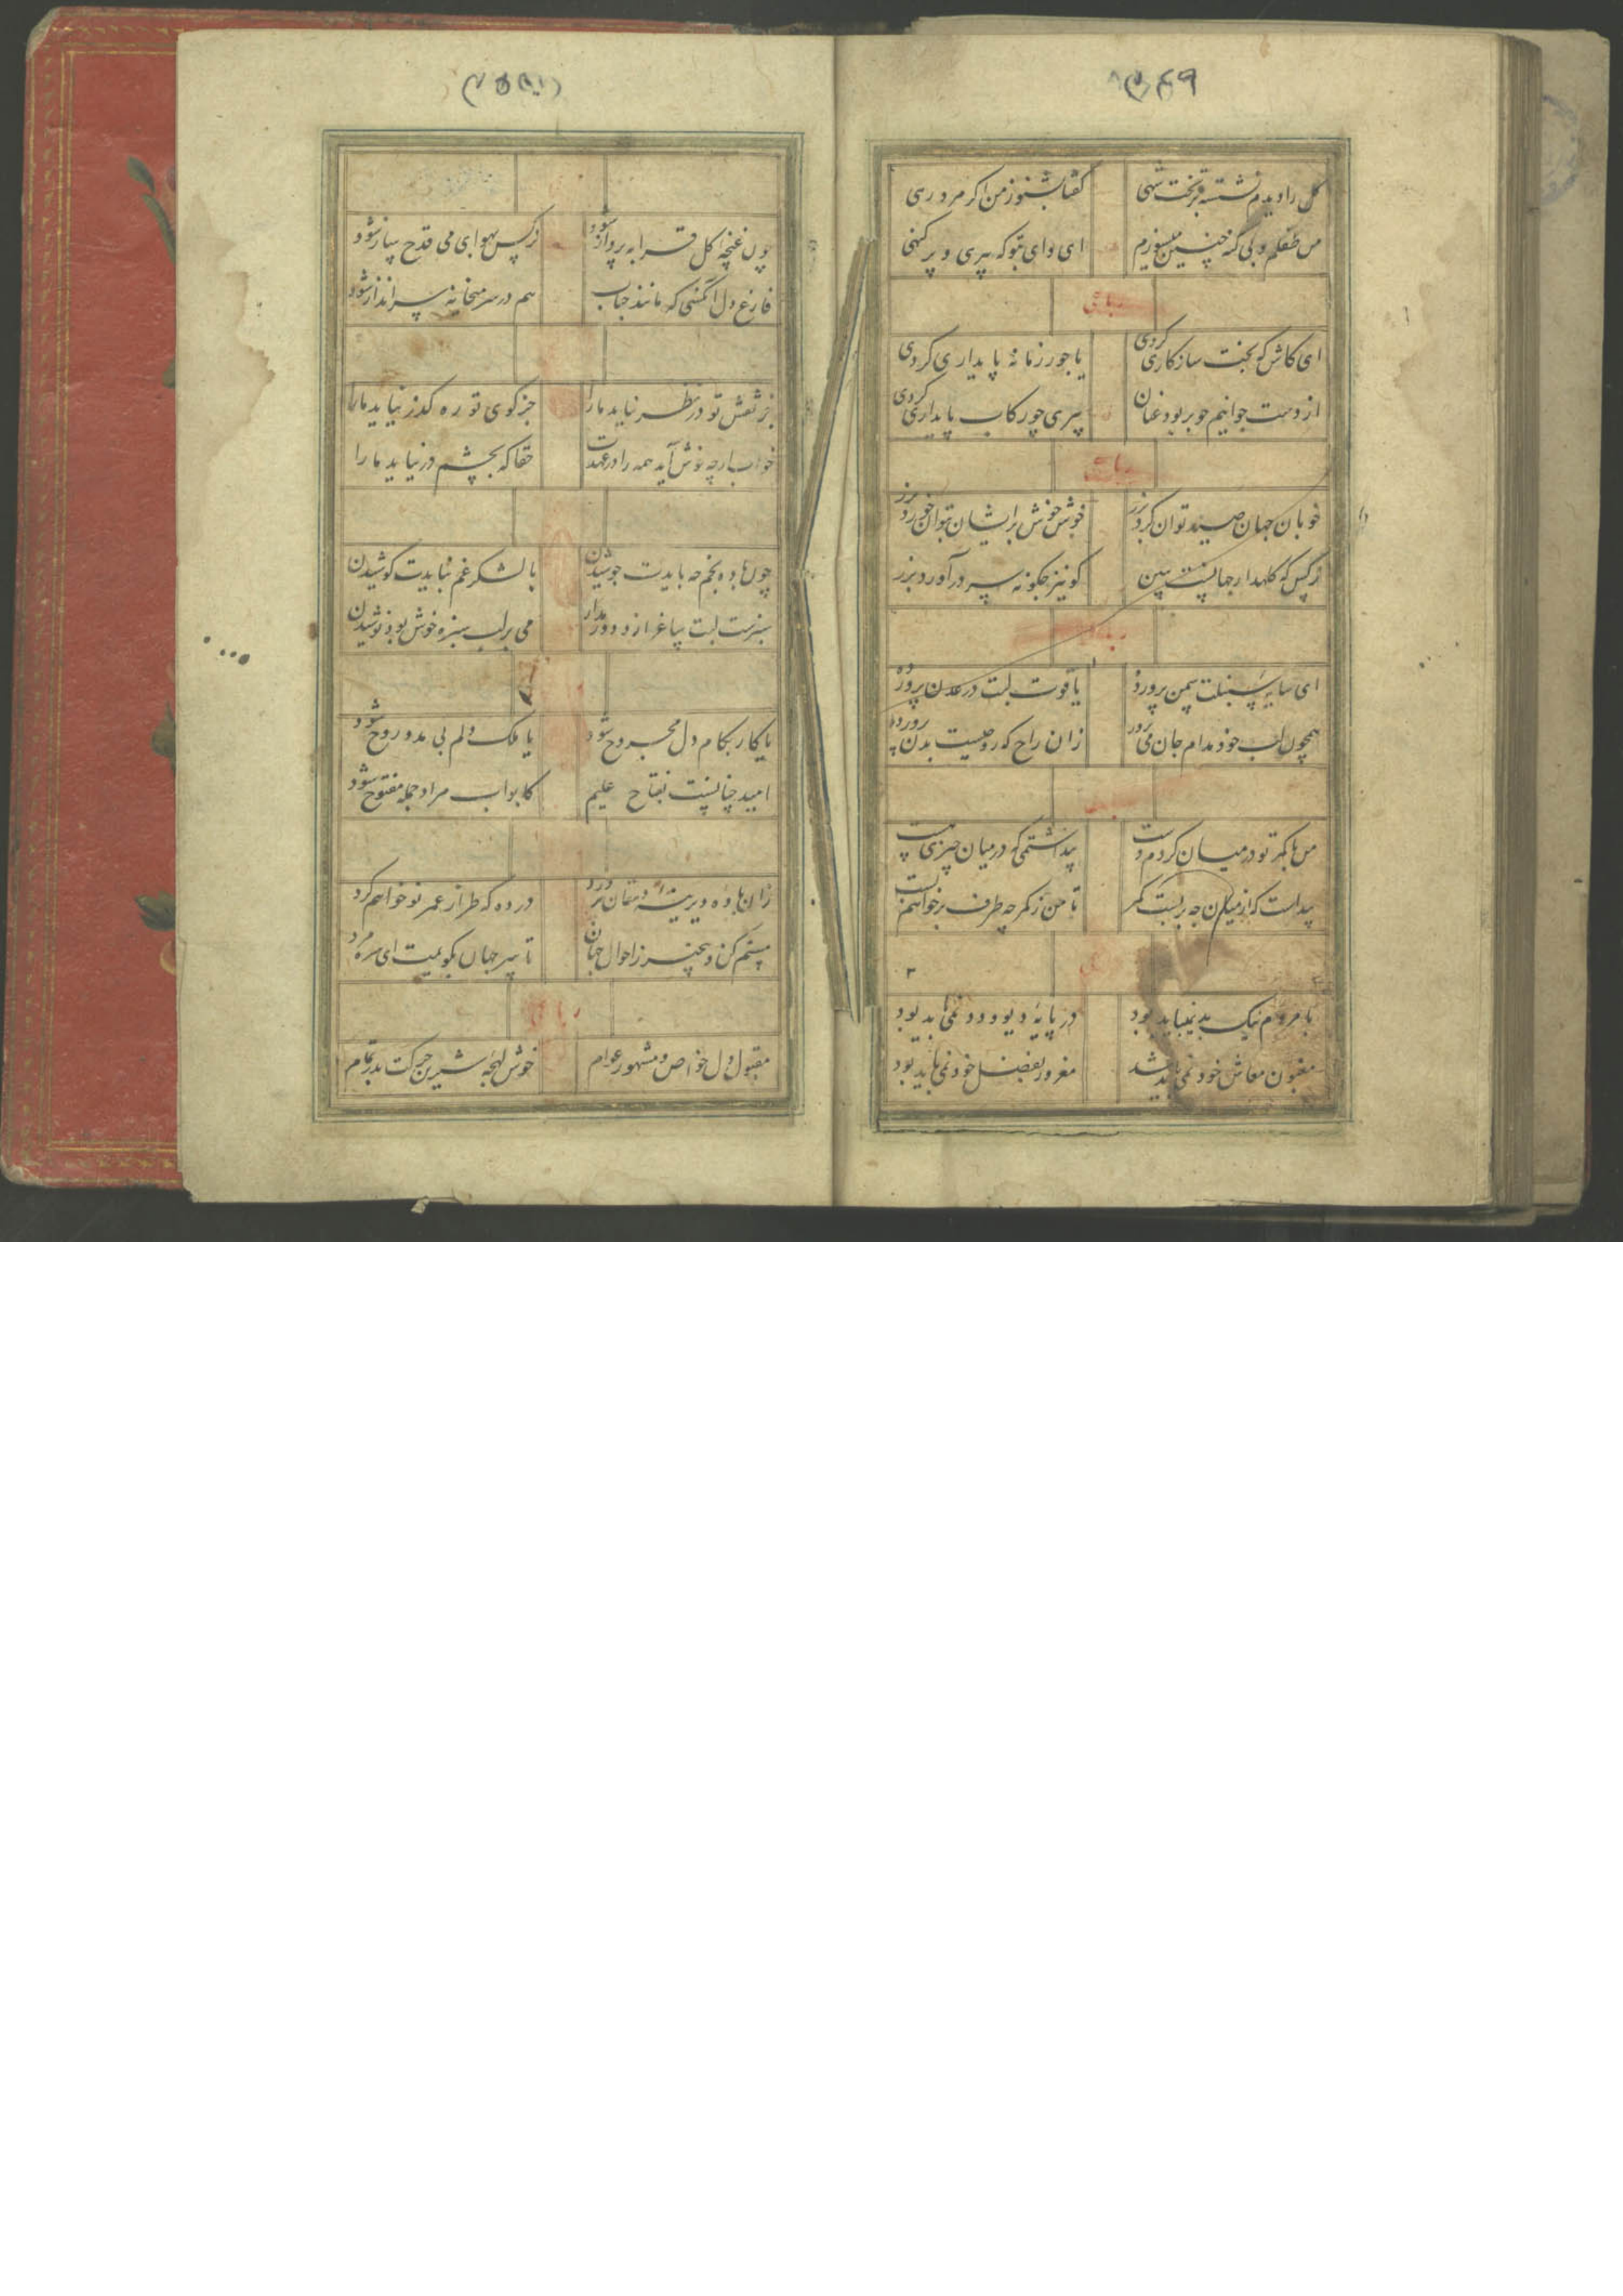 گل را دیدم نشسته بر تخت شهی گفتا بشنو ز من اگر مرد رهی
من طفلم و بی گنه چنین میسوزم ای وای بتو که پیری و پر گنهی
رباعی
ای کاش که بخت سازکاری کردی با جور زمانه پایداری کردی
از دست جوانیم چو بربود عنان پیری چو رکاب پایداری کردی
رباعی
خوبان جهان صید توان کرد بزر خوش خوش بر ایشان بتوان خورد بزر
نرکس که کلهدار جهانست ببین کو نیز چکونه سر درآورد بزر
رباعی
ای سایه سنبلت سمن پرورده یاقوت لبت در عدن پرورده
همچون لب خود مدام جان می پرور زان راح که روحیست بدن پرورده
رباعی
من با کمر تو در میان کردم دست پنداشتمی که در میان چیزی هست
پیداست که از میان چه بربست کمر تا من ز کمر چه طرف برخواهم بست
رباعی
با مردم نیک بد نمیباید بود در پایه دیو و دد نمی باید بود
مفتون معاش خود نمی باید شد مغرور بفضل خود نمی باید بود
چون غنچه کل قرابه پرداز شود نرکس بهوای می قدح ساز شود
فارغ دل آنکسی که مانند حباب هم در سر میخانه سرانداز شود
جز نقش تو در نظر نیاید ما را جز کوی تو ره کذر نیاید ما را
خواب ارچه خوش آید همه را در عهدت حقا که بچشم در نیاید ما را
چون باده بخم چه بایدت جوشیدن با لشکر غم نبایدت کوشیدن
سبزست لبت ساغر ازو دور مدار می بر لب سبزه خوش بود نوشیدن
یا کار بکام دل مجروح شود یا ملک دلم بی مدد روح شود
امید چنانست بفتاح علیم کابواب مراد جمله مفتوح شود
زان باده دیرینه دهقان پرورد در ده که طراز عمر نو خواهم کرد
مستم کن و بیخبر ز احوال جهان تا سر جهان بکویمت ای سره مرد
رباعی
مقبول دل خواص و مشهور عوام خوش لهجه شیرین حرکت بدر تمام